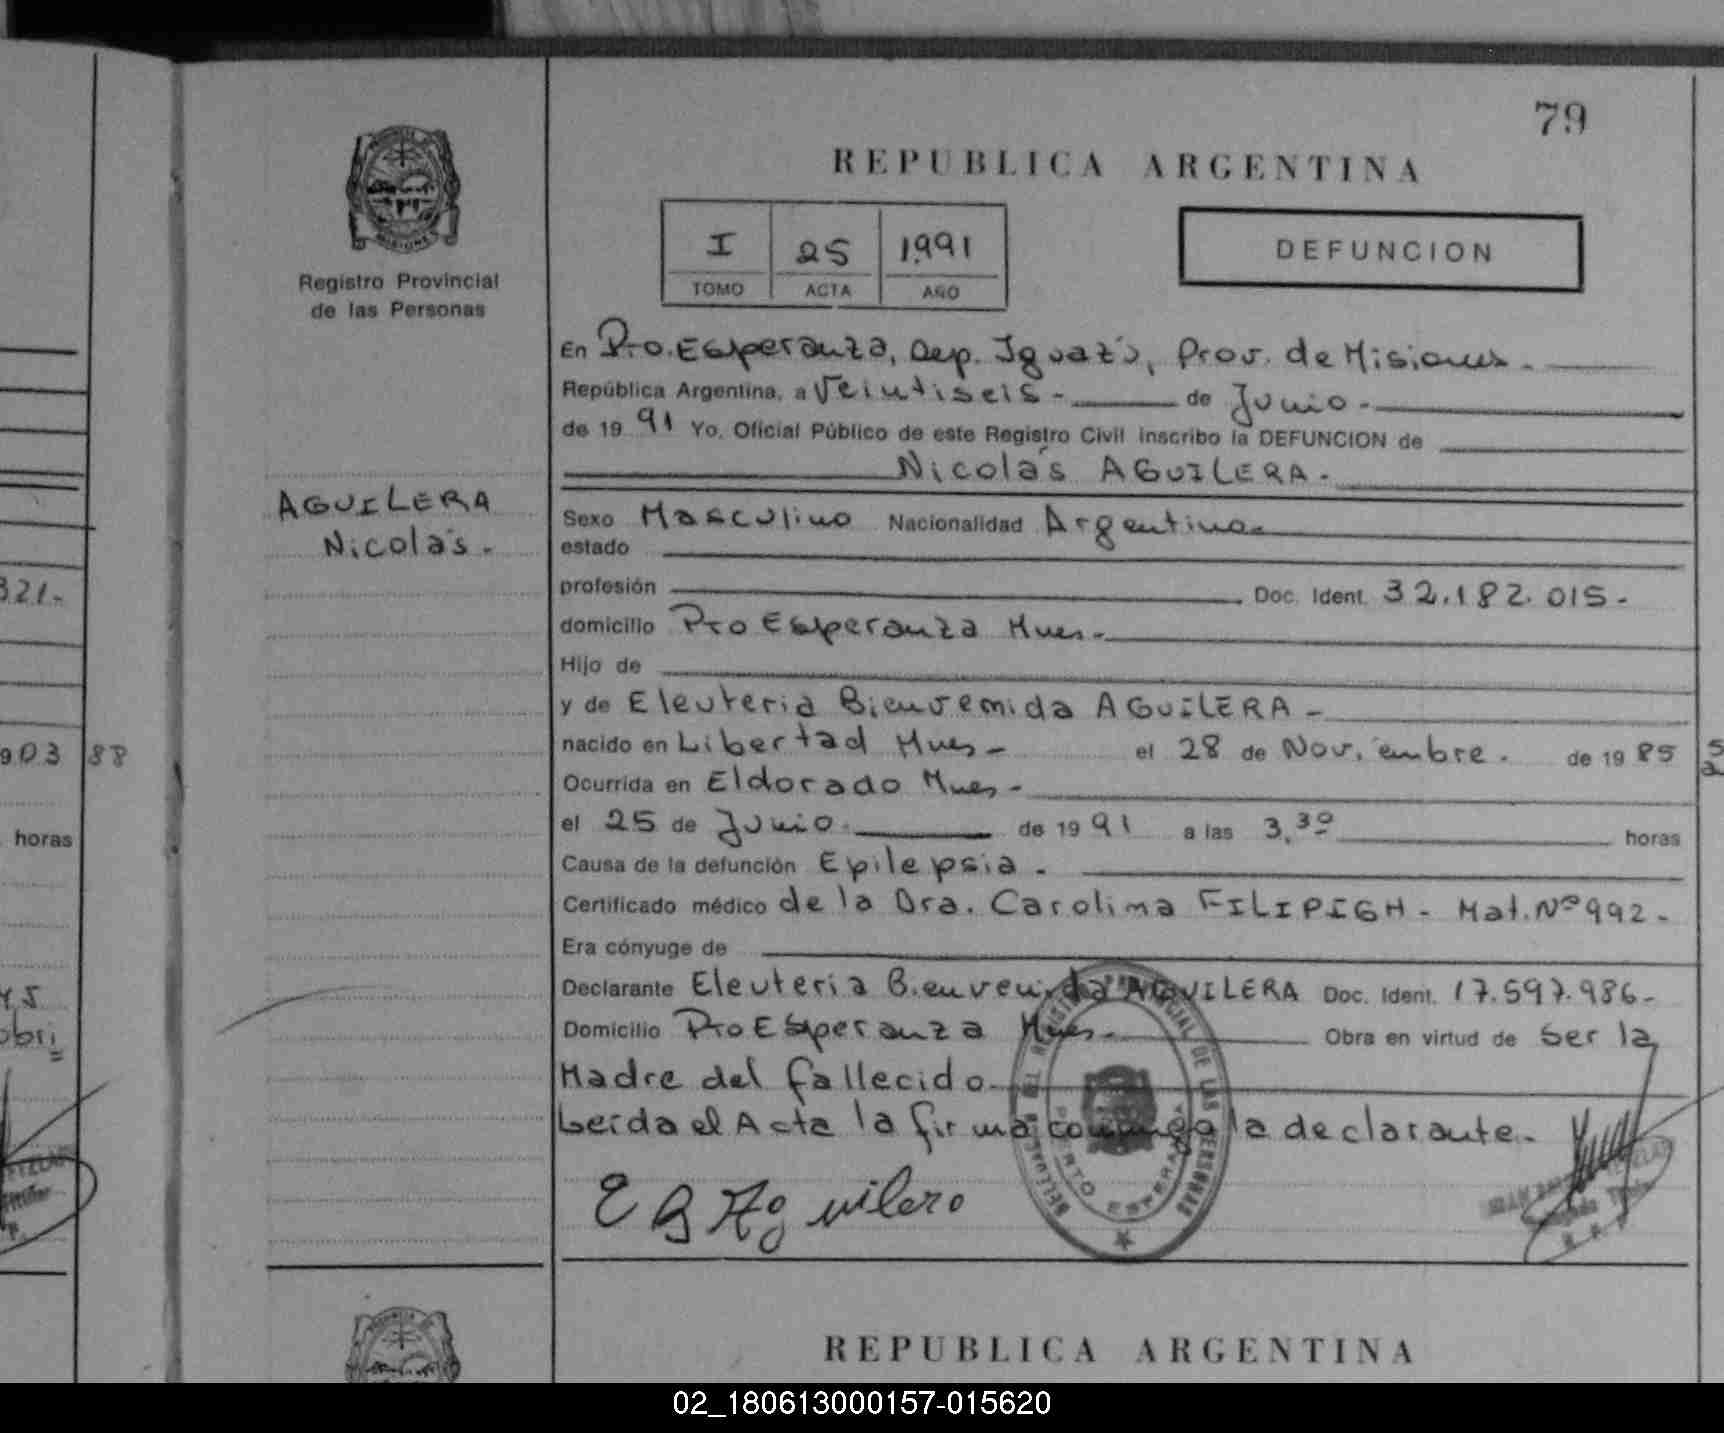 79
REPUBLICA ARGENTINA
Registro Provincial
de las Personas
I 25 1991
TOMO ACTA AÑO
DEFUNCION
En Pto. Esperanza, Dep. Iguazú, Prov. de Misiones.
República Argentina, a Veintiseis - de Junio.
de 19 91 Yo, Oficial Público de este Registro Civil inscribo la DEFUNCION de
Nicolás AGUILERA.
AGUILERA
Nicolás.
Sexo Masculino Nacionalidad Argentina
estado
profesión Doc. Ident. 32.182.015.
domicilio Pto Esperanza Mnes.
Hijo de
y de Eleuteria Bienvenida AGUILERA -
nacido en Libertad Mnes - el 28 de Noviembre. de 19 85
Ocurrida en Eldorado Mnes -
el 25 de Junio. de 19 91 a las 3,30 horas
Causa de la defunción Epilepsia.
Certificado médico de la Dra. Carolina FILIPIGH - Mat. Nº 992 -
Era cónyuge de
Declarante Eleuteria Bienvenida AGUILERA Doc. Ident. 17.597.986-
Domicilio Pto Esperanza Mnes. Obra en virtud de Ser la
Madre del fallecido.
Leída el Acta la firma conmigo la declarante.
E B Aguilera
PUERTO ESPERANZA
321-
903 88
horas
REPUBLICA ARGENTINA
02_180613000157-015620